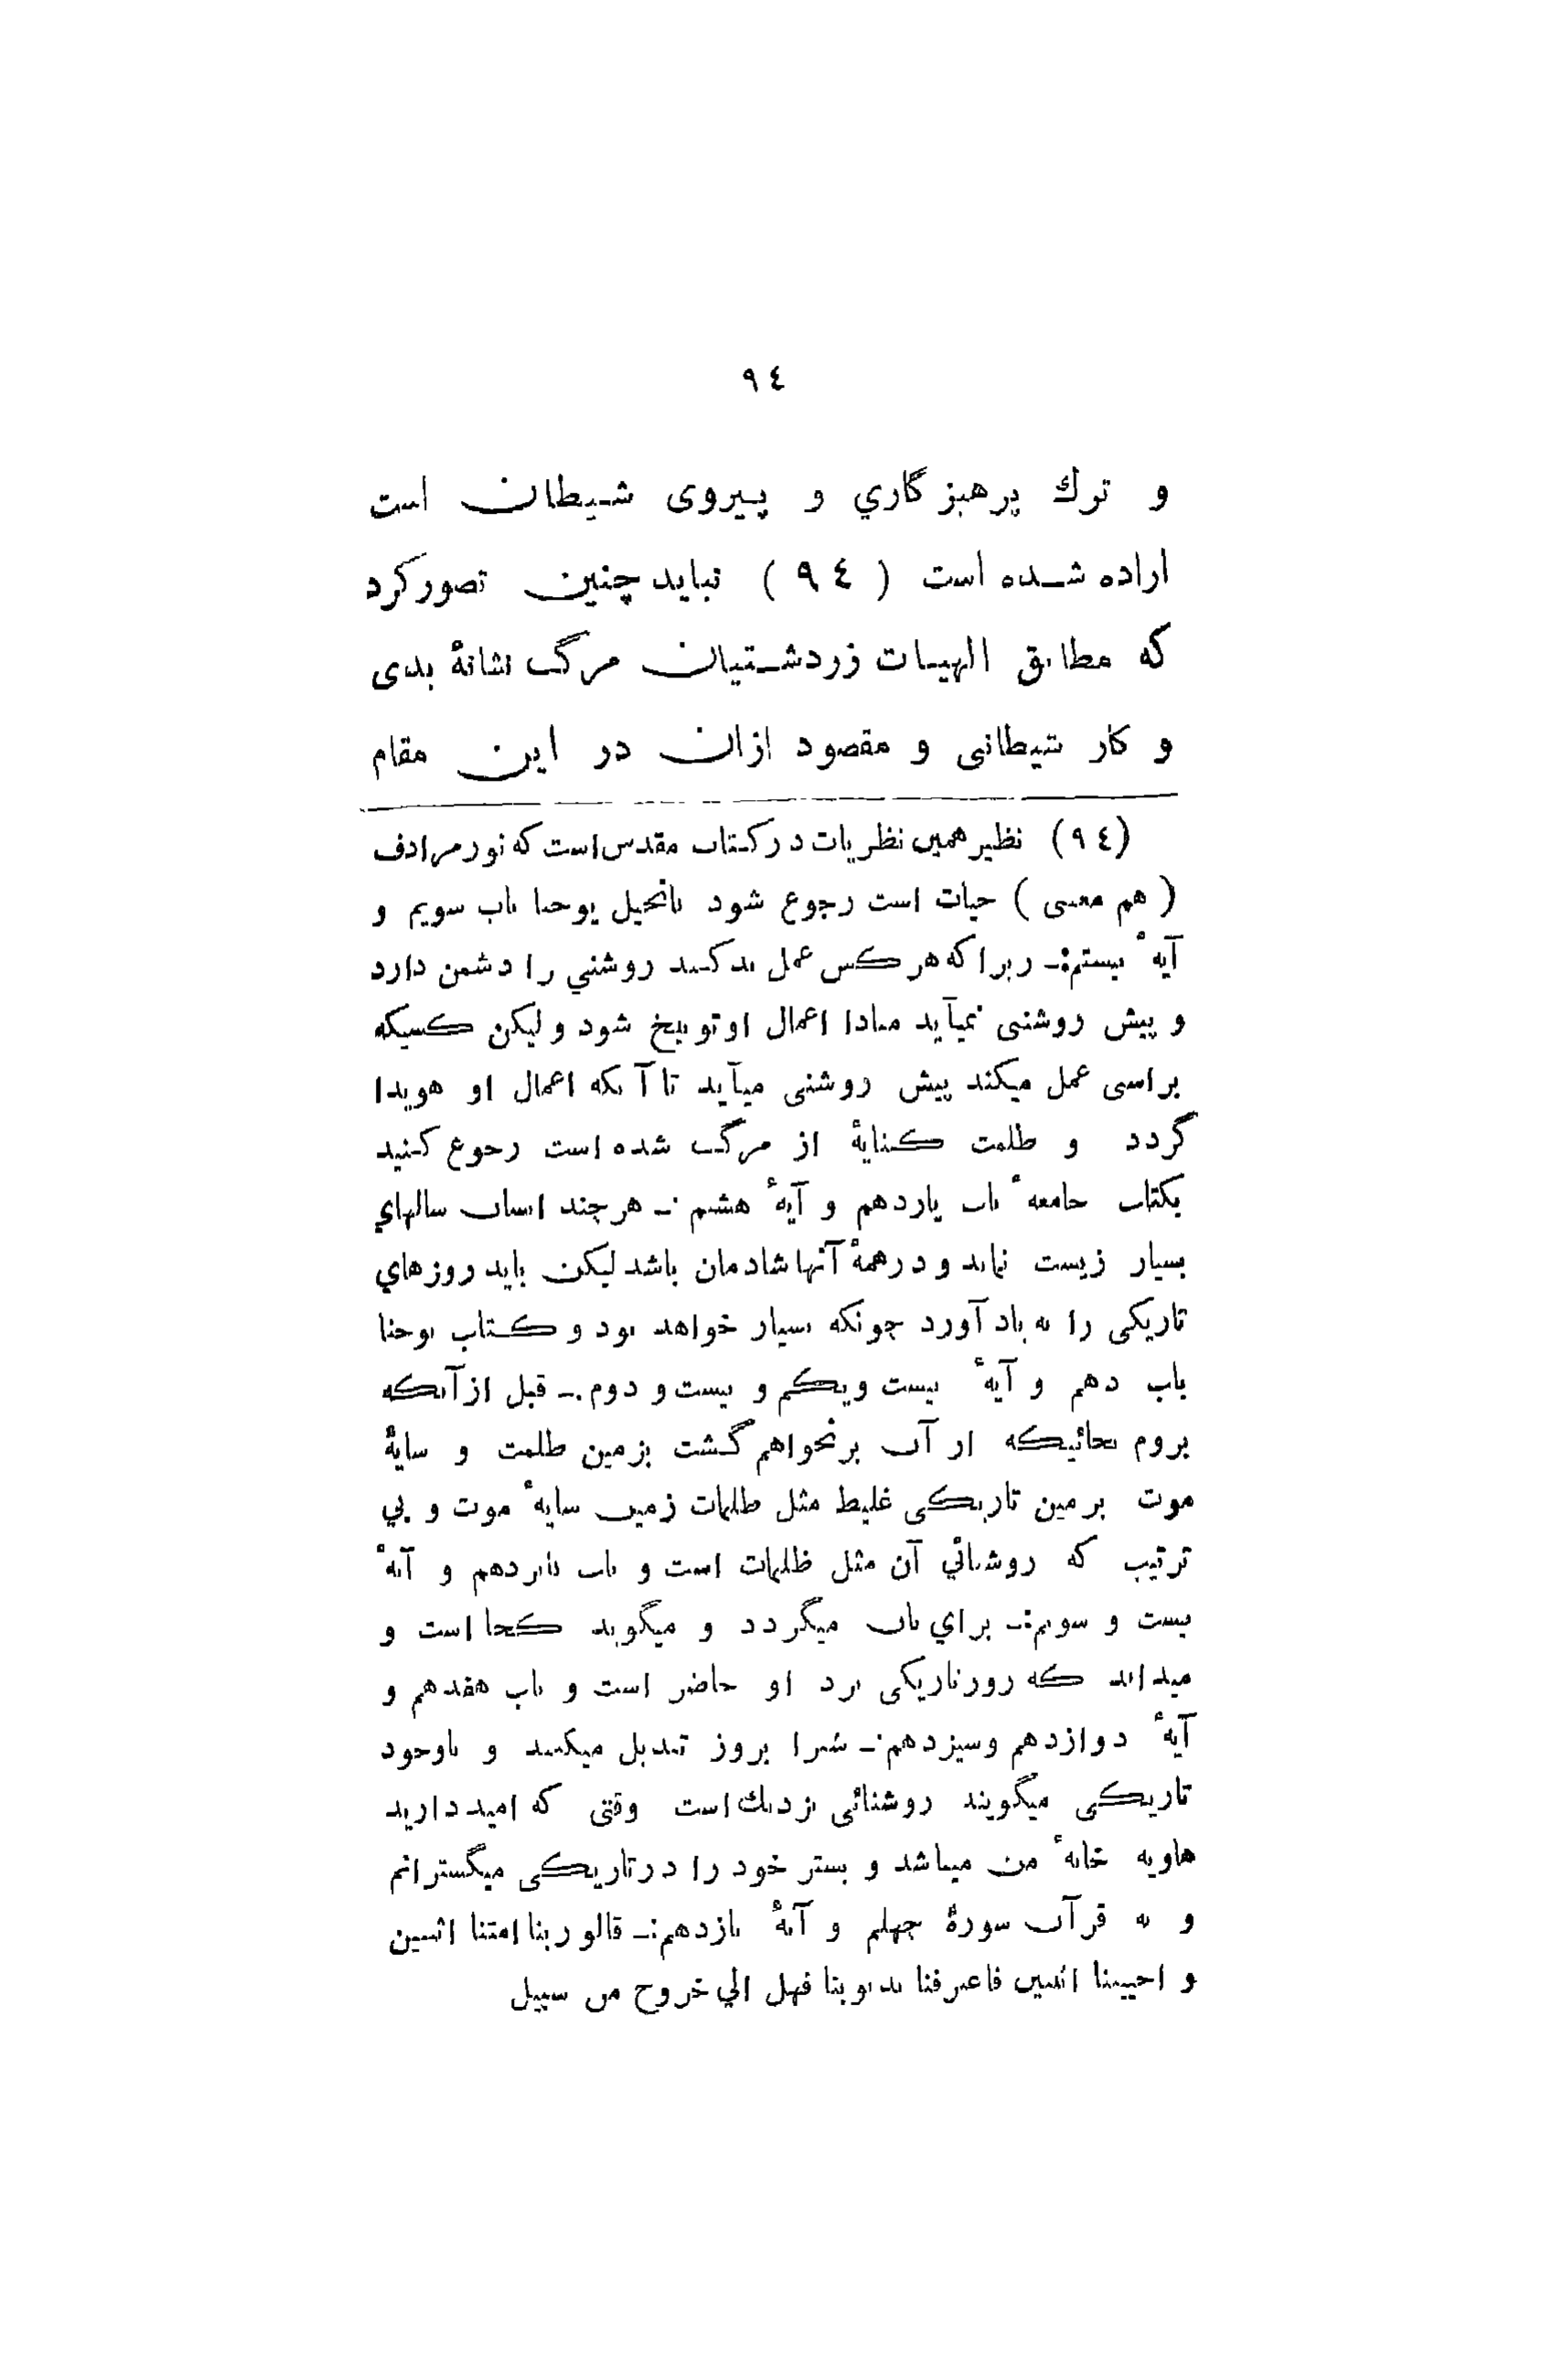 ٩٤
و ترك پرهیز گاري و پیروی شیطان است
اراده شده است ( ٩٤ ) نباید چنین تصور کرد
که مطابق الهیات زردشتیان مرگ نشانهٔ بدی
و کار شیطانی و مقصود ازان در این مقام
(٩٤) نظیر همین نظریات در کتاب مقدس است که نور مرادف
( هم معنی ) حیات است رجوع شود بانجیل یوحنا باب سویم و
آیهٔ بیستم:ـ زیرا که هر کس عمل بد کند روشني را دشمن دارد
و پیش روشنی نمیآید مبادا اعمال او توبیخ شود و لیکن کسیکه
براستی عمل میکند پیش روشنی میآید تا آنکه اعمال او هویدا
گردد و ظلمت کنایهٔ از مرگ شده است رجوع کنید
بکتاب جامعهٔ باب یازدهم و آیهٔ هشتم :ـ هر چند انسان سالهاي
بسیار زیست نماید و در همهٔ آنها شادمان باشد لیکن باید روزهاي
تاریکی را به یاد آورد چونکه بسیار خواهد بود و کتاب یوحنا
باب دهم و آیهٔ بیست و یکم و بیست و دوم :ـ قبل از آنکه
بروم بجائیکه از آن برنخواهم گشت بزمین ظلمت و سایهٔ
موت بزمین تاریکی غلیظ مثل ظلمات زمین سایهٔ موت و بي
ترتیب که روشنائي آن مثل ظلمات است و باب پانزدهم و آیهٔ
بیست و سوم:ـ براي نان میگردد و میگوید کجا است و
میداند که روز تاریکی نزد او حاضر است و باب هفدهم و
آیهٔ دوازدهم و سیزدهم :ـ شبرا بروز تبدیل میکنند و باوجود
تاریکی میگویند روشنائی نزدیك است وقتی که امید دارید
هاویه خانهٔ من میباشد و بستر خود را در تاریکی میگسترانم
و به قرآن سورهٔ چهلم و آیهٔ یازدهم:ـ قالو ربنا امتنا اثنین
و احییتنا اثنین فاعترفنا بذنوبنا فهل الي خروج من سبیل